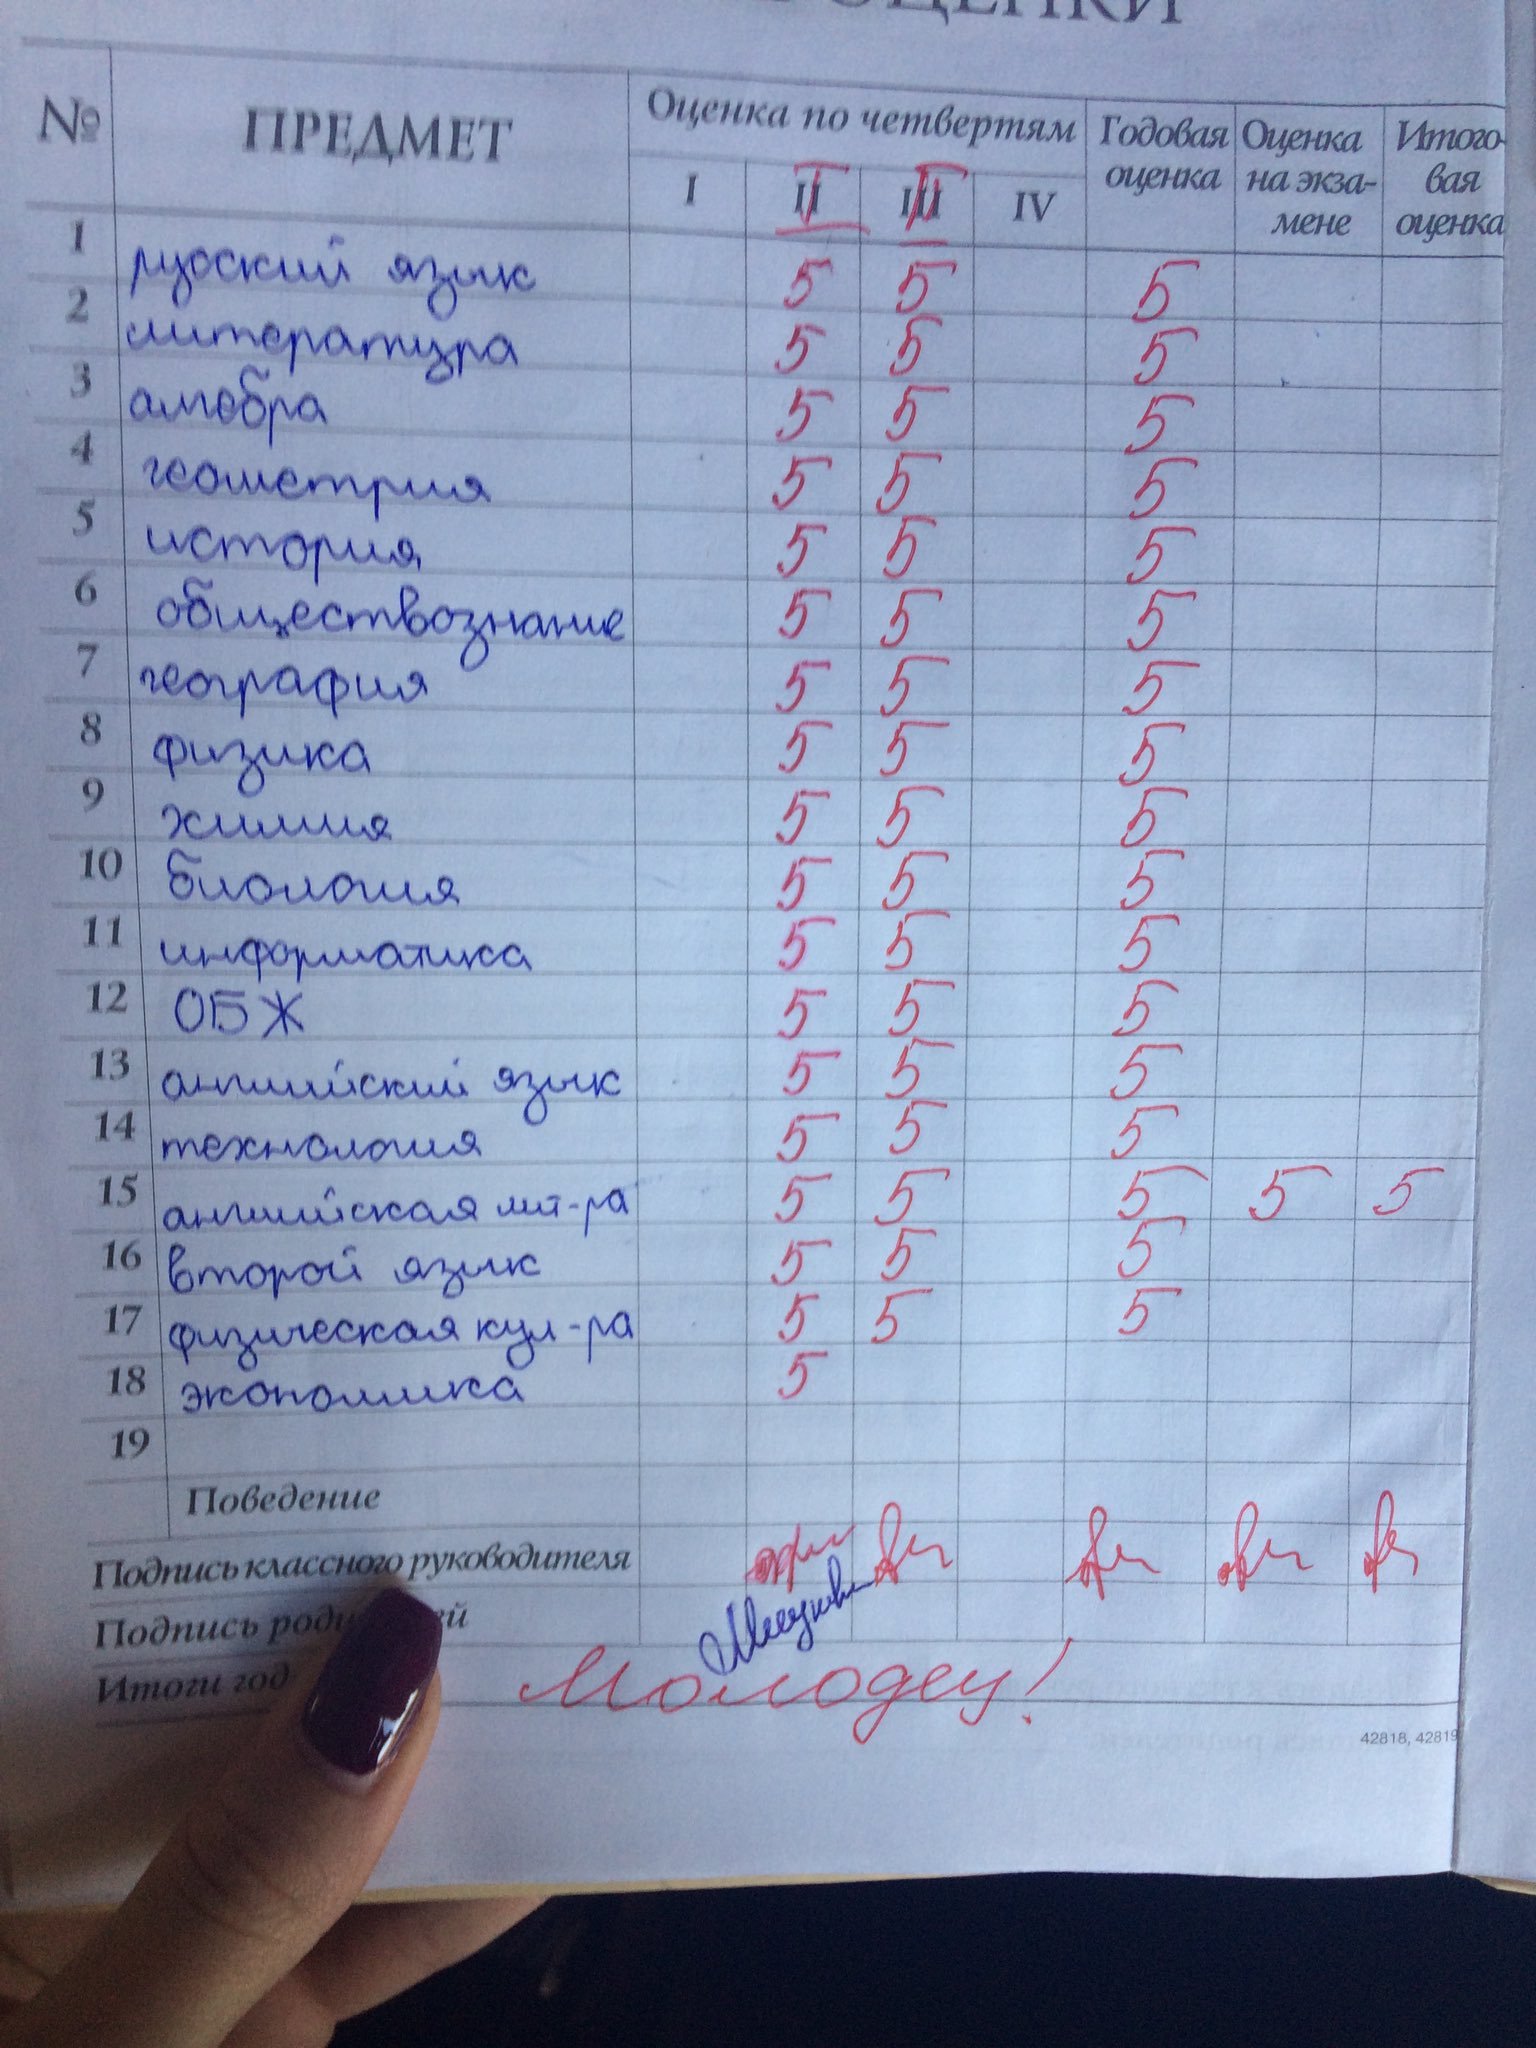 ОЦЕНКИ
№ ПРЕДМЕТ Оценка по четвертям Годовая оценка Оценка на экза-мене Итого-вая оценка
I II III IV
1 русский язык 5 5 5
2 литература 5 5 5
3 алгебра 5 5 5
4 геометрия 5 5 5
5 история 5 5 5
6 обществознание 5 5 5
7 география 5 5 5
8 физика 5 5 5
9 химия 5 5 5
10 биология 5 5 5
11 информатика 5 5 5
12 ОБЖ 5 5 5
13 английский язык 5 5 5
14 технология 5 5 5
15 английская лит-ра 5 5 5 5 5
16 второй язык 5 5 5
17 физическая кул-ра 5 5 5
18 экономика 5
19
Поведение
Подпись классного руководителя
Подпись
Итоги год Молодец!
42818, 42819